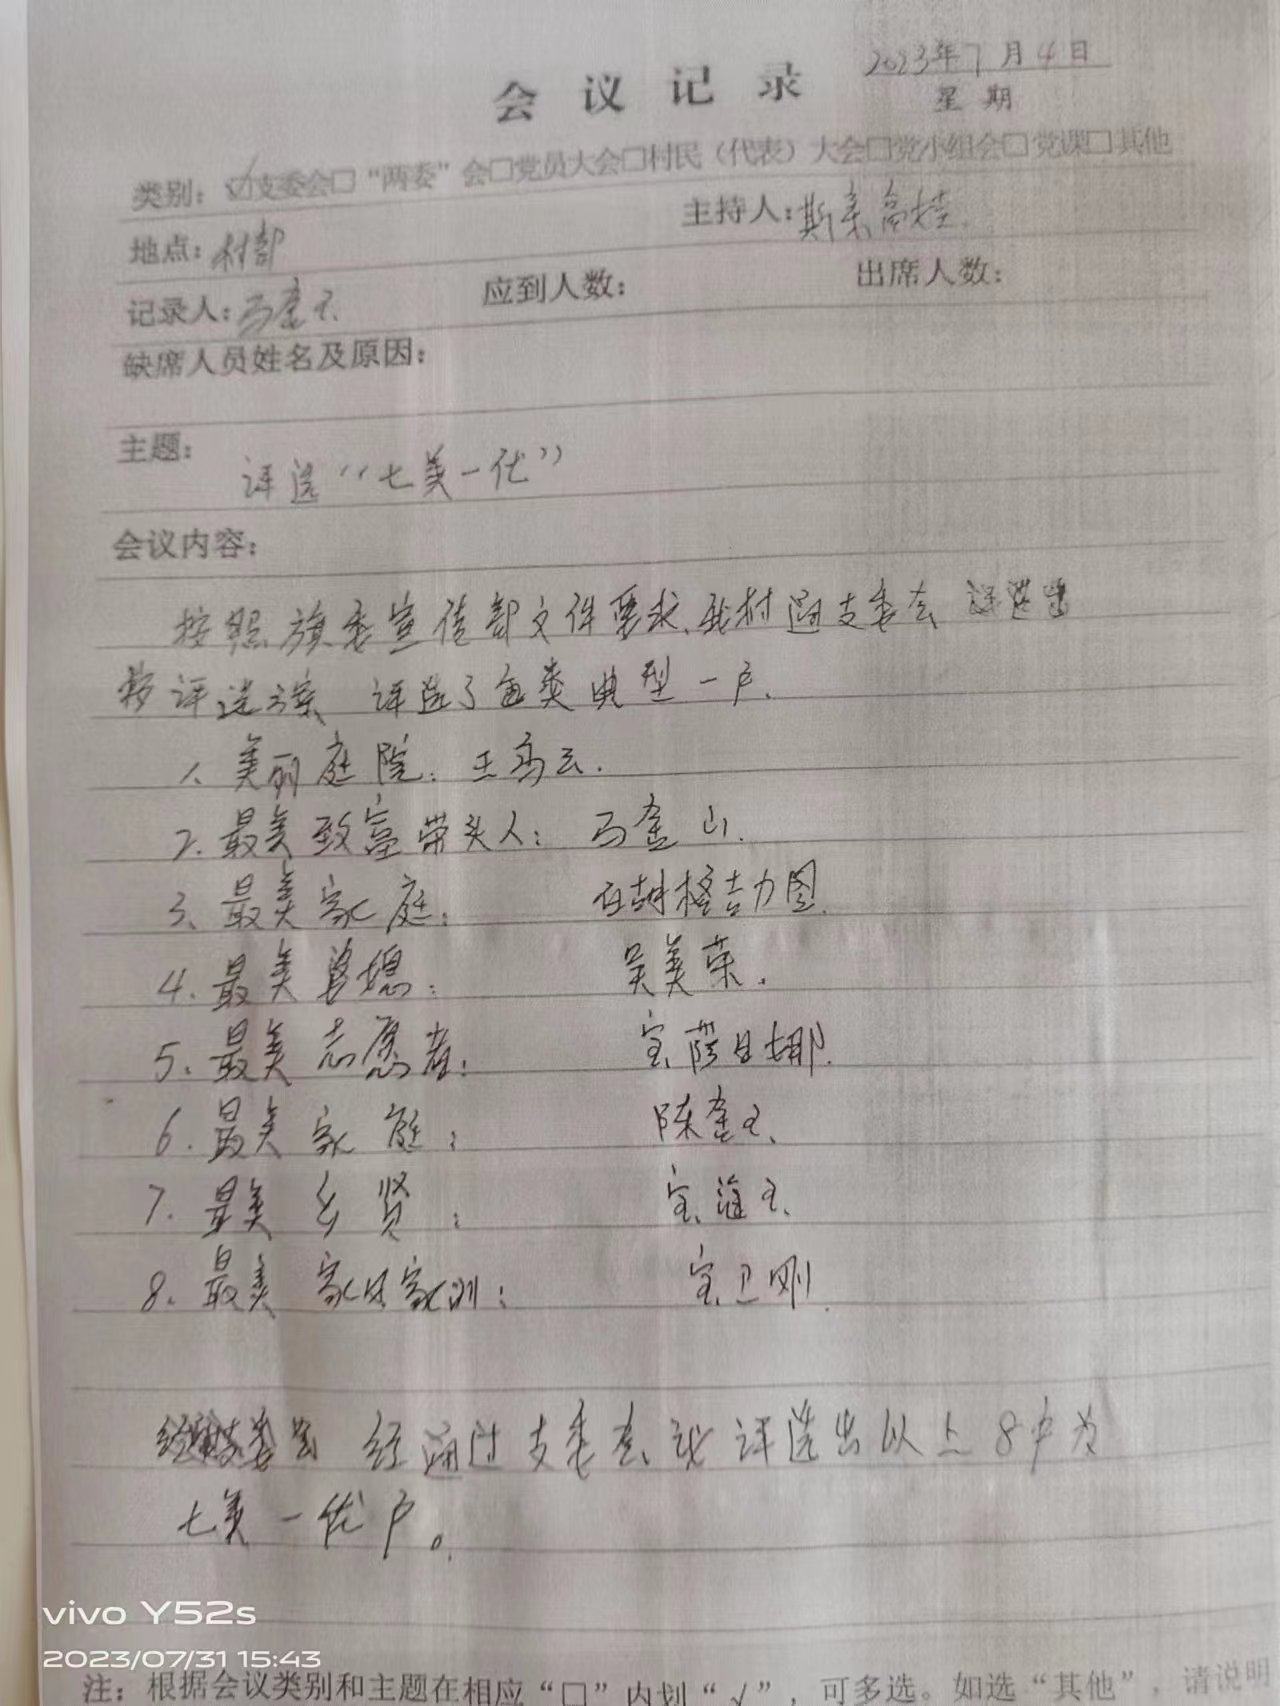 2023年7月4日
会议记录
星期
类别：☑支委会□“两委”会□党员大会□村民（代表）大会□党小组会□党课□其他
地点：村部 主持人：斯琴高娃.
记录人：马金玉 应到人数： 出席人数：
缺席人员姓名及原因：
主题：
评选“七美一优”
会议内容：
按照旗委宣传部文件要求、我村通支委会
评选 评选了每类典型一户.
1、美丽庭院：王高云.
2.最美致富带头人：马金山.
3、最美家庭： 白胡格吉力图.
4.最美婆媳： 吴美荣.
5.最美志愿者： 宝萨日娜.
6.最美家庭： 陈金玉
7.最美乡贤： 宝 玉
8.最美家风家训： 宝卫刚.
经通过支委会 评选出以上8户为
七美一优户。
vivo Y52s
2023/07/31 15:43
注：根据会议类别和主题在相应“□”内划“√”，可多选。如选“其他”，请说明